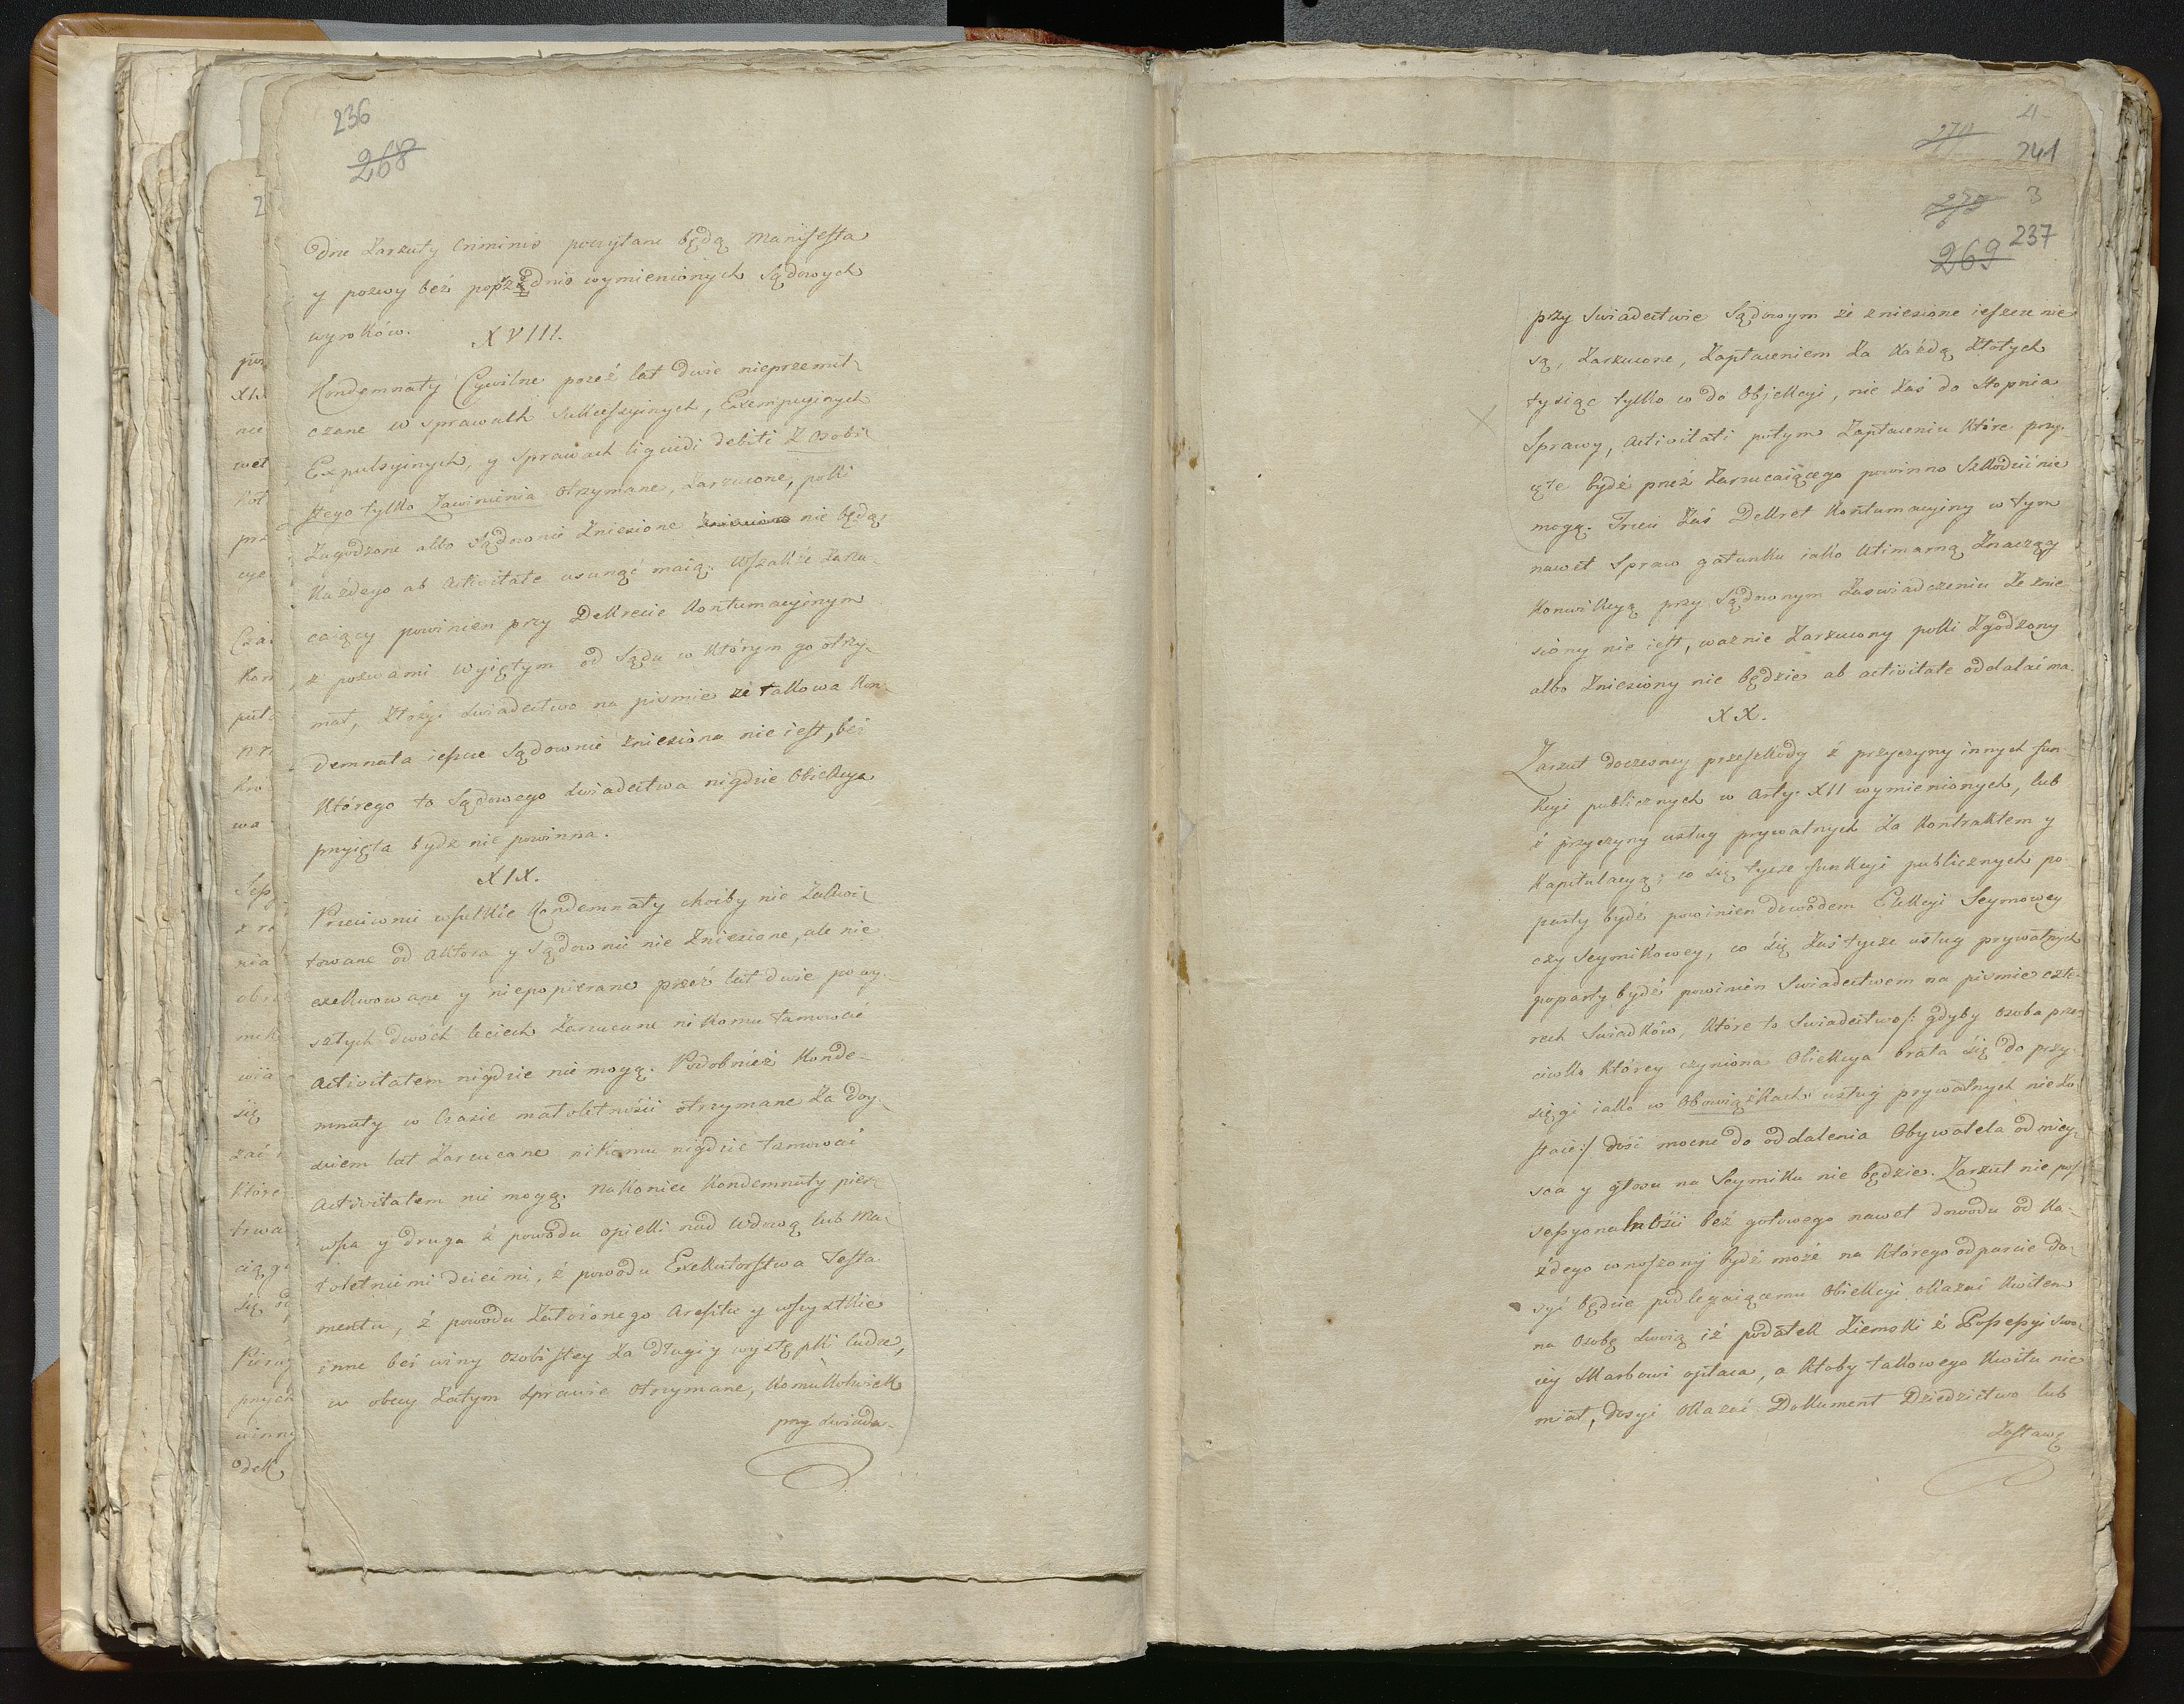 236
268
dne Zarzuty Criminis poczytane będą Manifesta
y pozwy beż poprzednio wymienionych Sądowych
wyroków.
XVIII.
Kondemnaty Cywilne przeź lat dwie nieprzemil-
czane w sprawach Sukcessyinych, Exempcyinych
Expulsyinych, y Sprawach liquidi debiti Z Osobi-
stego tylko Zawinienia otrzymane, Zarzucone, poki
Zagodzone albo Sądownie Zniesione nie będą,
Każdego ab Activitate usunąć maią. Wszakże Zarzu-
caiący powinien przy Dekrecie Kontumacyinym
z pozwami wyiętym od Sądu w Którym go otrzy-
mał, Złożyć Swiadectwo na pismie że takowa Kon-
demnata ieszcze Sądownie zniesiona nie iest, beż
Którego to Sądowego Swiadectwa nigdzie Obiekcya
przyięta bydź nie powinna.
XIX.
Przeciwnie wszelkie Kondemnaty choćby nie Zakwi-
towane od Aktora y Sądownie nie Zniesione, ale nie
exekwowane y niepopierane przeź lat dwie po wy-
szłych dwóch leciech Zarzucane nikomu tamować
Activitatem nigdzie nie mogą. Podobnież Konde-
mnaty w Czasie małoletności otrzymane Za doy-
ściem lat Zarzucane nikomu nigdzie tamować
Activitatem nie mogą. Nakoniec Kondemnaty pier-
wsza y druga ź powodu opieki nad Wdową lub Ma-
łoletniemi dziećmi, ź powodu Exekutorstwa Testa-
mentu, ź powodu Założonego Aresztu y wszystkie
inne beż winy Osobistey Za długi y występki ludzi,
w obcey Zatym Sprawie otrzymane, Komukolwiek
przy Swiade-
4
241
3
237
269
przy Swiadectwie Sądowym że zniesione ieszcze nie
są, Zarzucone, Zapłaceniem Za Każdą Złotych
tysiąc tylko co do Objekcyi, nie Zaś do Stopnia
Sprawy, Activitati potym Zapłaceniu Które przy-
ięte bydź przeź Zarzucaiącego powinno Szkodzić nie
mogą. Trzeci Zaś Dekret Kontumacyiny w tym
nawet Spraw gatunku iako Ultimarną Znaczący
Konwikcyą przy Sądownym Zaswiadczeniu Że znie-
siony nie iest, ważnie Zarzucony poki Zgodzony
albo Zniesiony nie będzie ab activitate oddalać ma.
XX.
Zarzut doczesney przeszkody ź przyczyny innych fun-
kcyi publicznych w Arty: XII wymienionych, lub
ź przyczyny usług prywatnych Za Kontraktem y
Kapitulacyą; co się tycze funkcyi publicznych po-
party bydź powinien dowodem Elekcyi Seymowey
czy Seymikowey, co się Zaś tycze usług prywatnych
poparty bydź powinien Swiadectwem na pismie czte-
rech Swiadków, Które to Swiadectwo /: gdyby osoba prze-
ciwko Którey czyniona Obiekcya brała się do przy-
sięgi iako w Obowiązkach usług prywatnych nie Zo-
staie :/ dość mocne do oddalenia Obywatela od miey-
sca y głosu na Seymiku nie będzie. Zarzut nie pos-
sessyonalności beż gotowego nawet dowodu od Ka-
żdego wnoszony bydź może na Którego odparcie do-
syć będzie podlegaiącemu Obiekcyi okazać Kwitem
na Osobę Swoią iż podatek Ziemski ź Possessyi swo-
iey Skarbowi opłaca, a Ktoby takowego Kwitu nie
miał, dosyć okazać Dokument Dziedzictwo lub
Zastawę